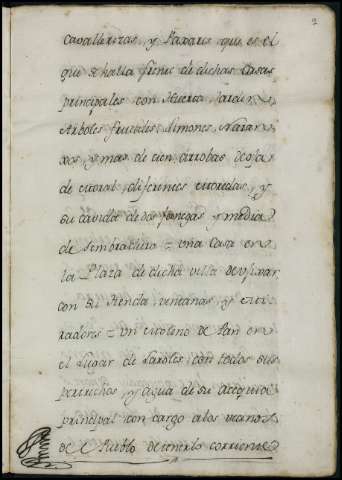 2
Cavallerizas, y Paxares que es el
que se halla frente de dichas Casas
principales con Huerta, Jardin
Arboles frutales, Limones, Naran
xos, y mas de cien arrobas de oja
de moral, diferentes moredas, y
su cavida de dos fanegas y media
de sembradura = una Casa en
la Plaza de dicha villa de Uxixar
con su tienda ventanas y mi
radores = Un molino de Pan en
el Lugar de Laroles con todos sus
pertrechos y agua de su acequia
principal con cargo alos vecinos
de el Pueblo de tenerla corriente